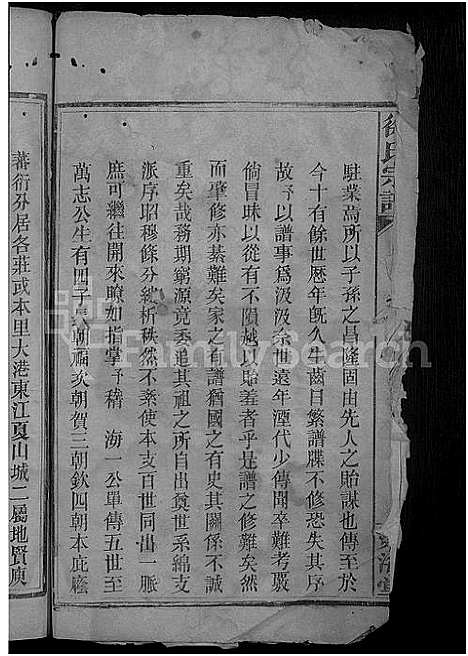 徐氏宗譜
駐業焉所以子孫之昌隆固由先人之貽謀也傳至於
今十有餘世歴年既久生齒日繁譜牒不修恐失其序
故予以譜事爲汲汲奈世遠年湮代少傳聞卒難考覈
倘冒昧以從有不隕越以貽羞者乎是譜之修難矣然
而肇修亦綦難矣家之有譜猶國之有史其關係不誠
重矣哉務期窮源竟委追其祖之所自出奠世系綿支
派序昭穆條分縷析秩然不紊使本支百世同出一脈
庶可繼往開來瞭如指掌予稽 海一公單傳五世至
萬志公生有四子長朝福次朝賀三朝欽四朝本庇廕
蕃衍外居各莊或本里大港東江夏山城二屬地賢廣
FamilySearch